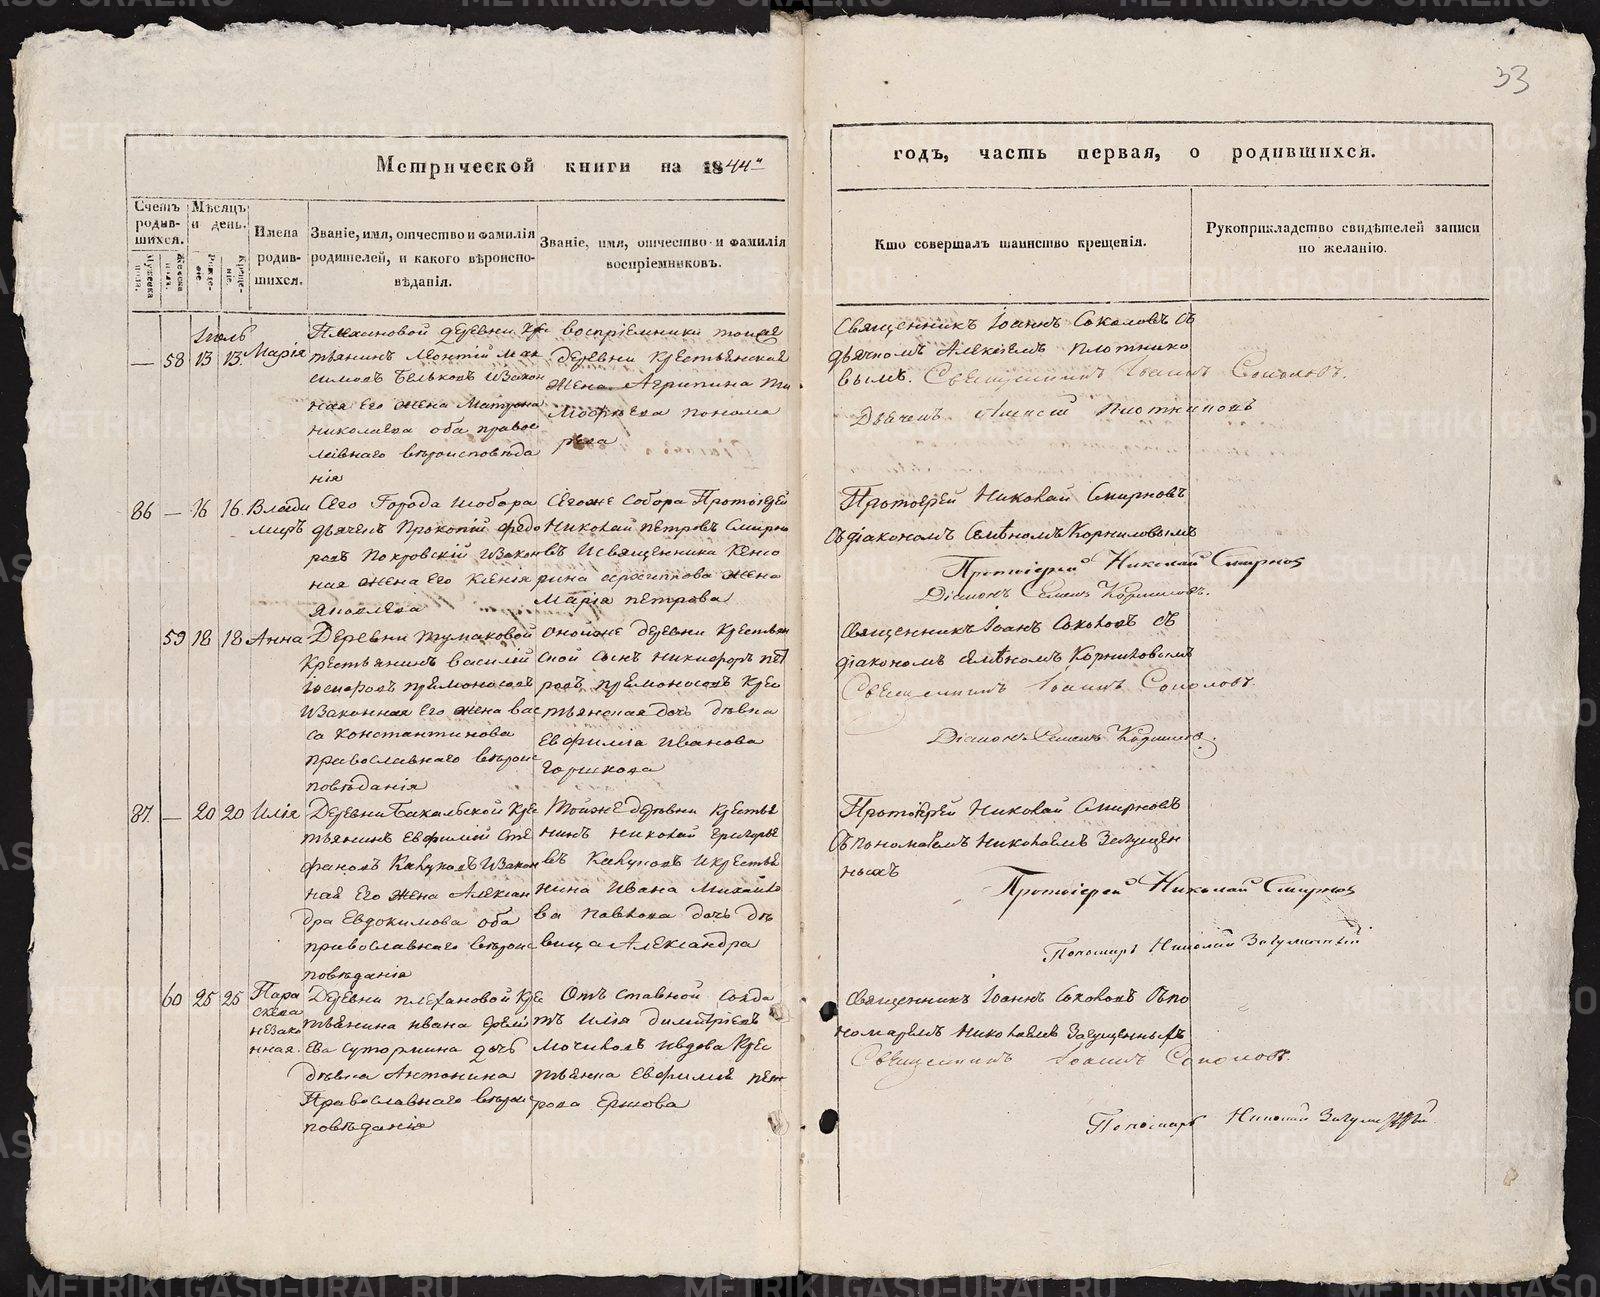 33
Метрической книги на 1844й
годъ, часть первая, о родившихся.
Счетъ родив- шихся.
Мужеска пола.
Женска пола.
Мѣсяцъ и день.
Рожде- нія.
Креще- нія.
Имена родив- шихся.
Званіе, имя, отчество и фамилія
родителей, и какого вѣроиспо-
вѣданія.
Званіе, имя, отчество и фамилія
воспріемниковъ.
Кто совершалъ таинство крещенія.
Рукоприкладство свидѣтелей записи
по желанію.
Іюль
— 58 13 13. Марія
Плехановой деревни Кре
тьянинъ Леонтій Мак
симовъ Бельковъ Изакон
ная Его жена Матрона
Николаева оба правос
лавнаго вѣроисповѣда
нія
воспріемники тойже
деревни крестьянская
жена Агрипина Ти
Мофѣева понома
рева
Священникъ Іоаннъ Соколовъ Съ
дьячкомъ Алексѣемъ Плотнико
вымъ. Священникъ Іоаннъ Соколовъ.
Дьячекъ Алексѣй Плотниковъ
86 — 16 16. Влади
миръ
Сего Города Исобора
дьячекъ Прокопій Федо
ровъ Покровскій Изакон
ная жена Его Ксенія
Яковлева
Сегоже Собора Протоіерей
Николай Петровъ Смирно
въ Исвященника Кенсо
рина архиппова жена
Марія петрова
Протоіерей Николай Смирновъ
Съ діакономъ Семеномъ Корниловымъ
Протоіерей Николай Смирновъ
Діаконъ Семенъ Корниловъ.
59 18 18 Анна
Деревни тумаковой
Крестьянинъ василій
Изаконная Его жена вас
са константинова
православнаго вѣроис
повѣданія
онойже деревни Крестьян
ской Сынъ никифоръ пет
ровъ прямоносовъ крес
тьянская дочь дѣвка
Евфимія иванова
Горшкова
Священникъ Іоанъ Соколовъ съ
діакономъ Семеномъ Корниловымъ
Священникъ Іоаннъ Соколовъ.
Діаконъ Семенъ Корниловъ.
87. — 20 20 Илія
Деревни Бакальской Кре
тьянинъ Евфимий Сте
фановъ Кокуховъ Изакон
ная Его жена Алексан
дра Евдокимова оба
православнаго вѣроис
повѣданія
Тойже деревни крестья
нинъ николай григорье
въ Икрестья
нина Ивана Михайло
ва павлова дочь дѣ
вица Александра
Протоіерей Николай Смирновъ
Съ пономаремъ Николаемъ
Протоіерей Николай Смирновъ
Пономарь Николай
60 25 25 Пара
скева
незако
нная.
Деревни плехановой Кре
тьянина ивана
Ева Сутормина дочь
дѣвка Антонина
Православнаго вѣроис
повѣданія
Отъ Ставной Солда
тъ Илія димитріевъ
Мочиловъ Ивдова Крес
тьянка Евфимія пет
рова Ершова
Священникъ Іоаннъ Соколовъ Съ по
номаремъ Николаемъ
Священникъ Іоаннъ Соколовъ.
Пономарь Николай
METRIKI.GASO-URAL.RU